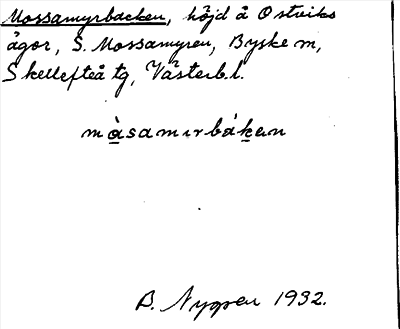 Mossamyrbacken, höjd å Ostviks
ägor, S. Mossamyren, Byske sn,
Skellefteå tg, Västerb. l.
màsamırbákɛn
B. Nygren 1932.